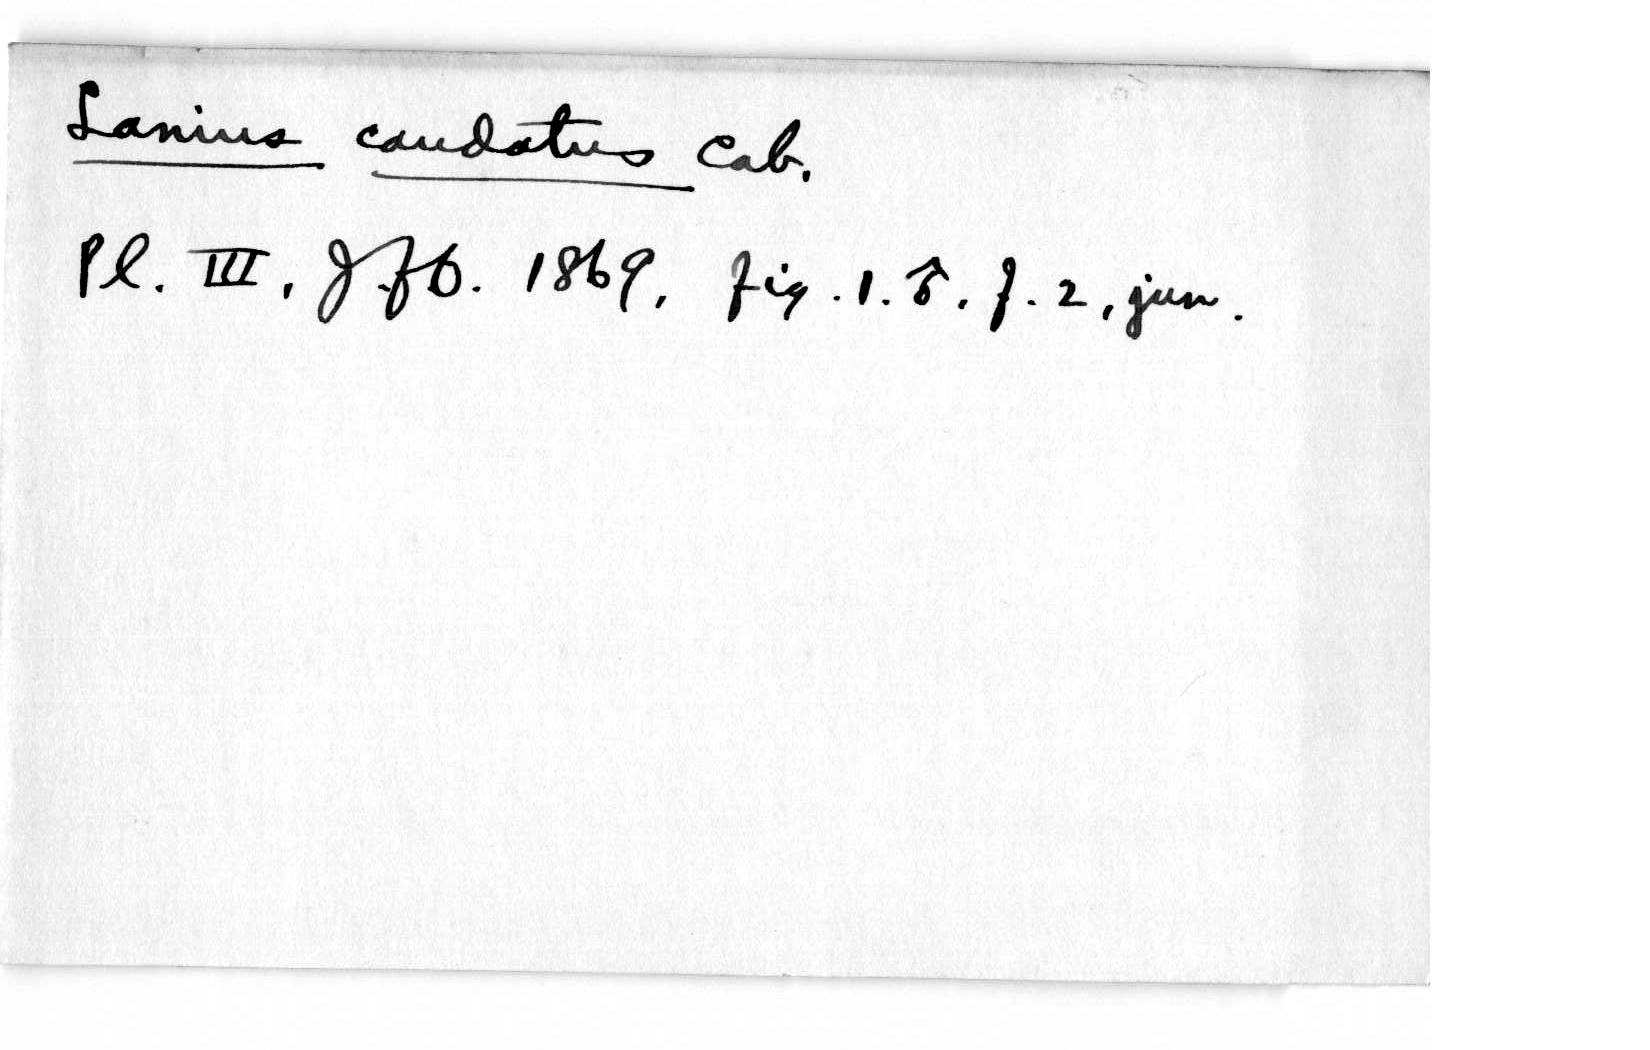 Lanius caudatus Cab.
Pl. III, J.f.O. 1869, fig. 1. ♂. f. 2, juv.